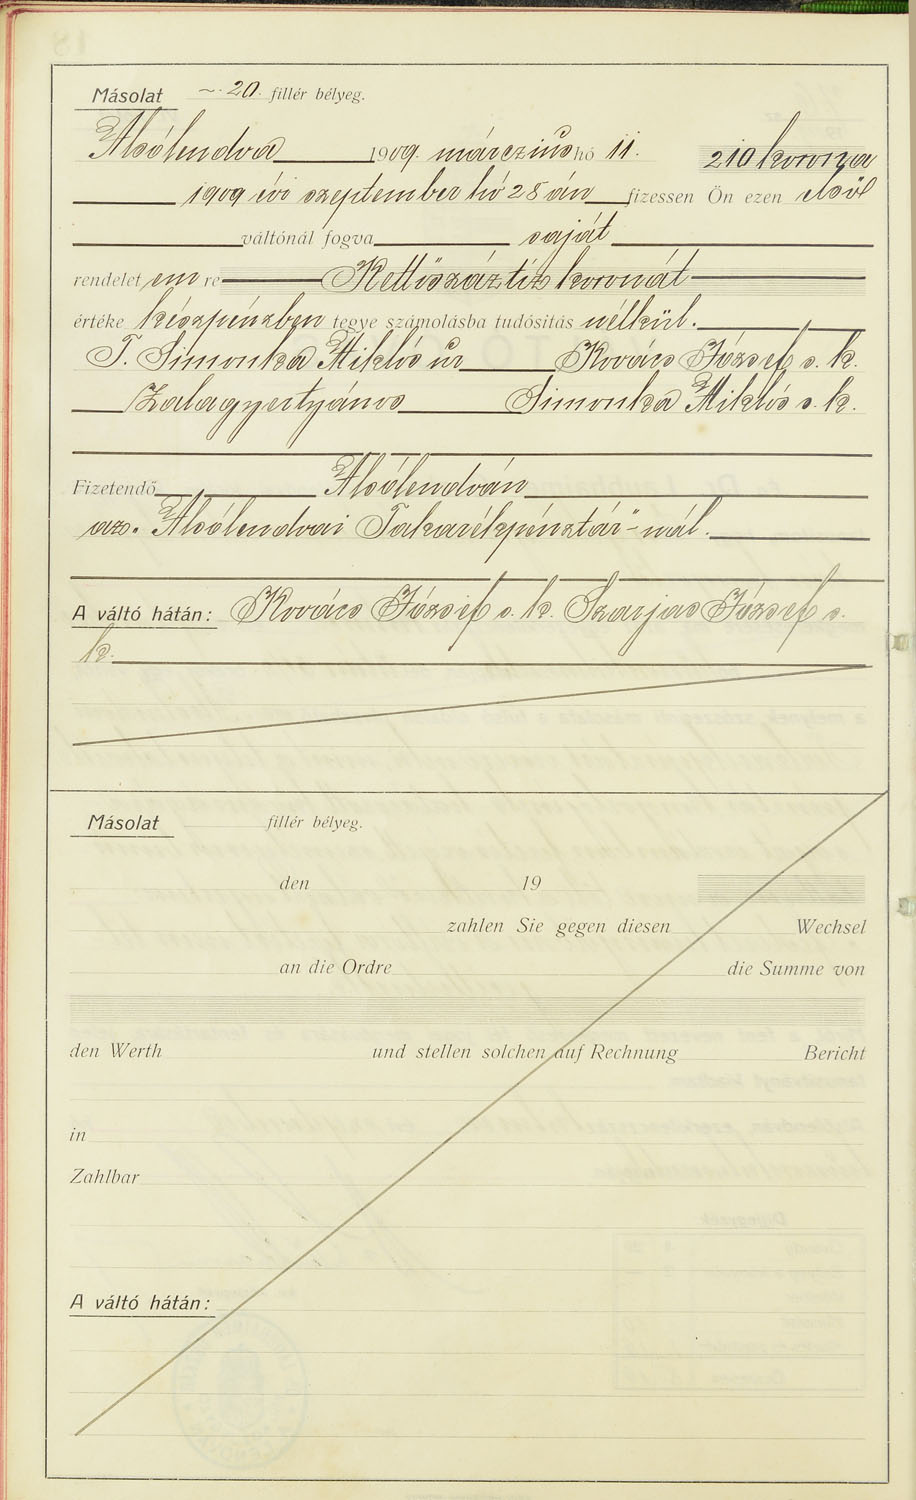 Másolat ~. 20. fillér bélyeg.
Alsólendva 1909. márczius hó 11. 210 korona
1909 évi szeptember hó 28 án fizessen Ön ezen első
váltónál fogva saját
rendelet em re Kettőszáztíz koronát
értéke készpénzben tegye számolásba tudósitás nélkül.
T. Simonka Miklós úr Kovács József s. k.
Zalagyertyános Simonka Miklós s. k.
Fizetendő Alsólendván
az „Alsólendvai Takarékpénztár"-nál.
A váltó hátán: Kovács József s. k. Szarjas József s.
k.
Másolat fillér bélyeg.
den 19
zahlen Sie gegen diesen Wechsel
an die Ordre die Summe von
den Werth und stellen solchen auf Rechnung Bericht
in
Zahlbar
A váltó hátán: